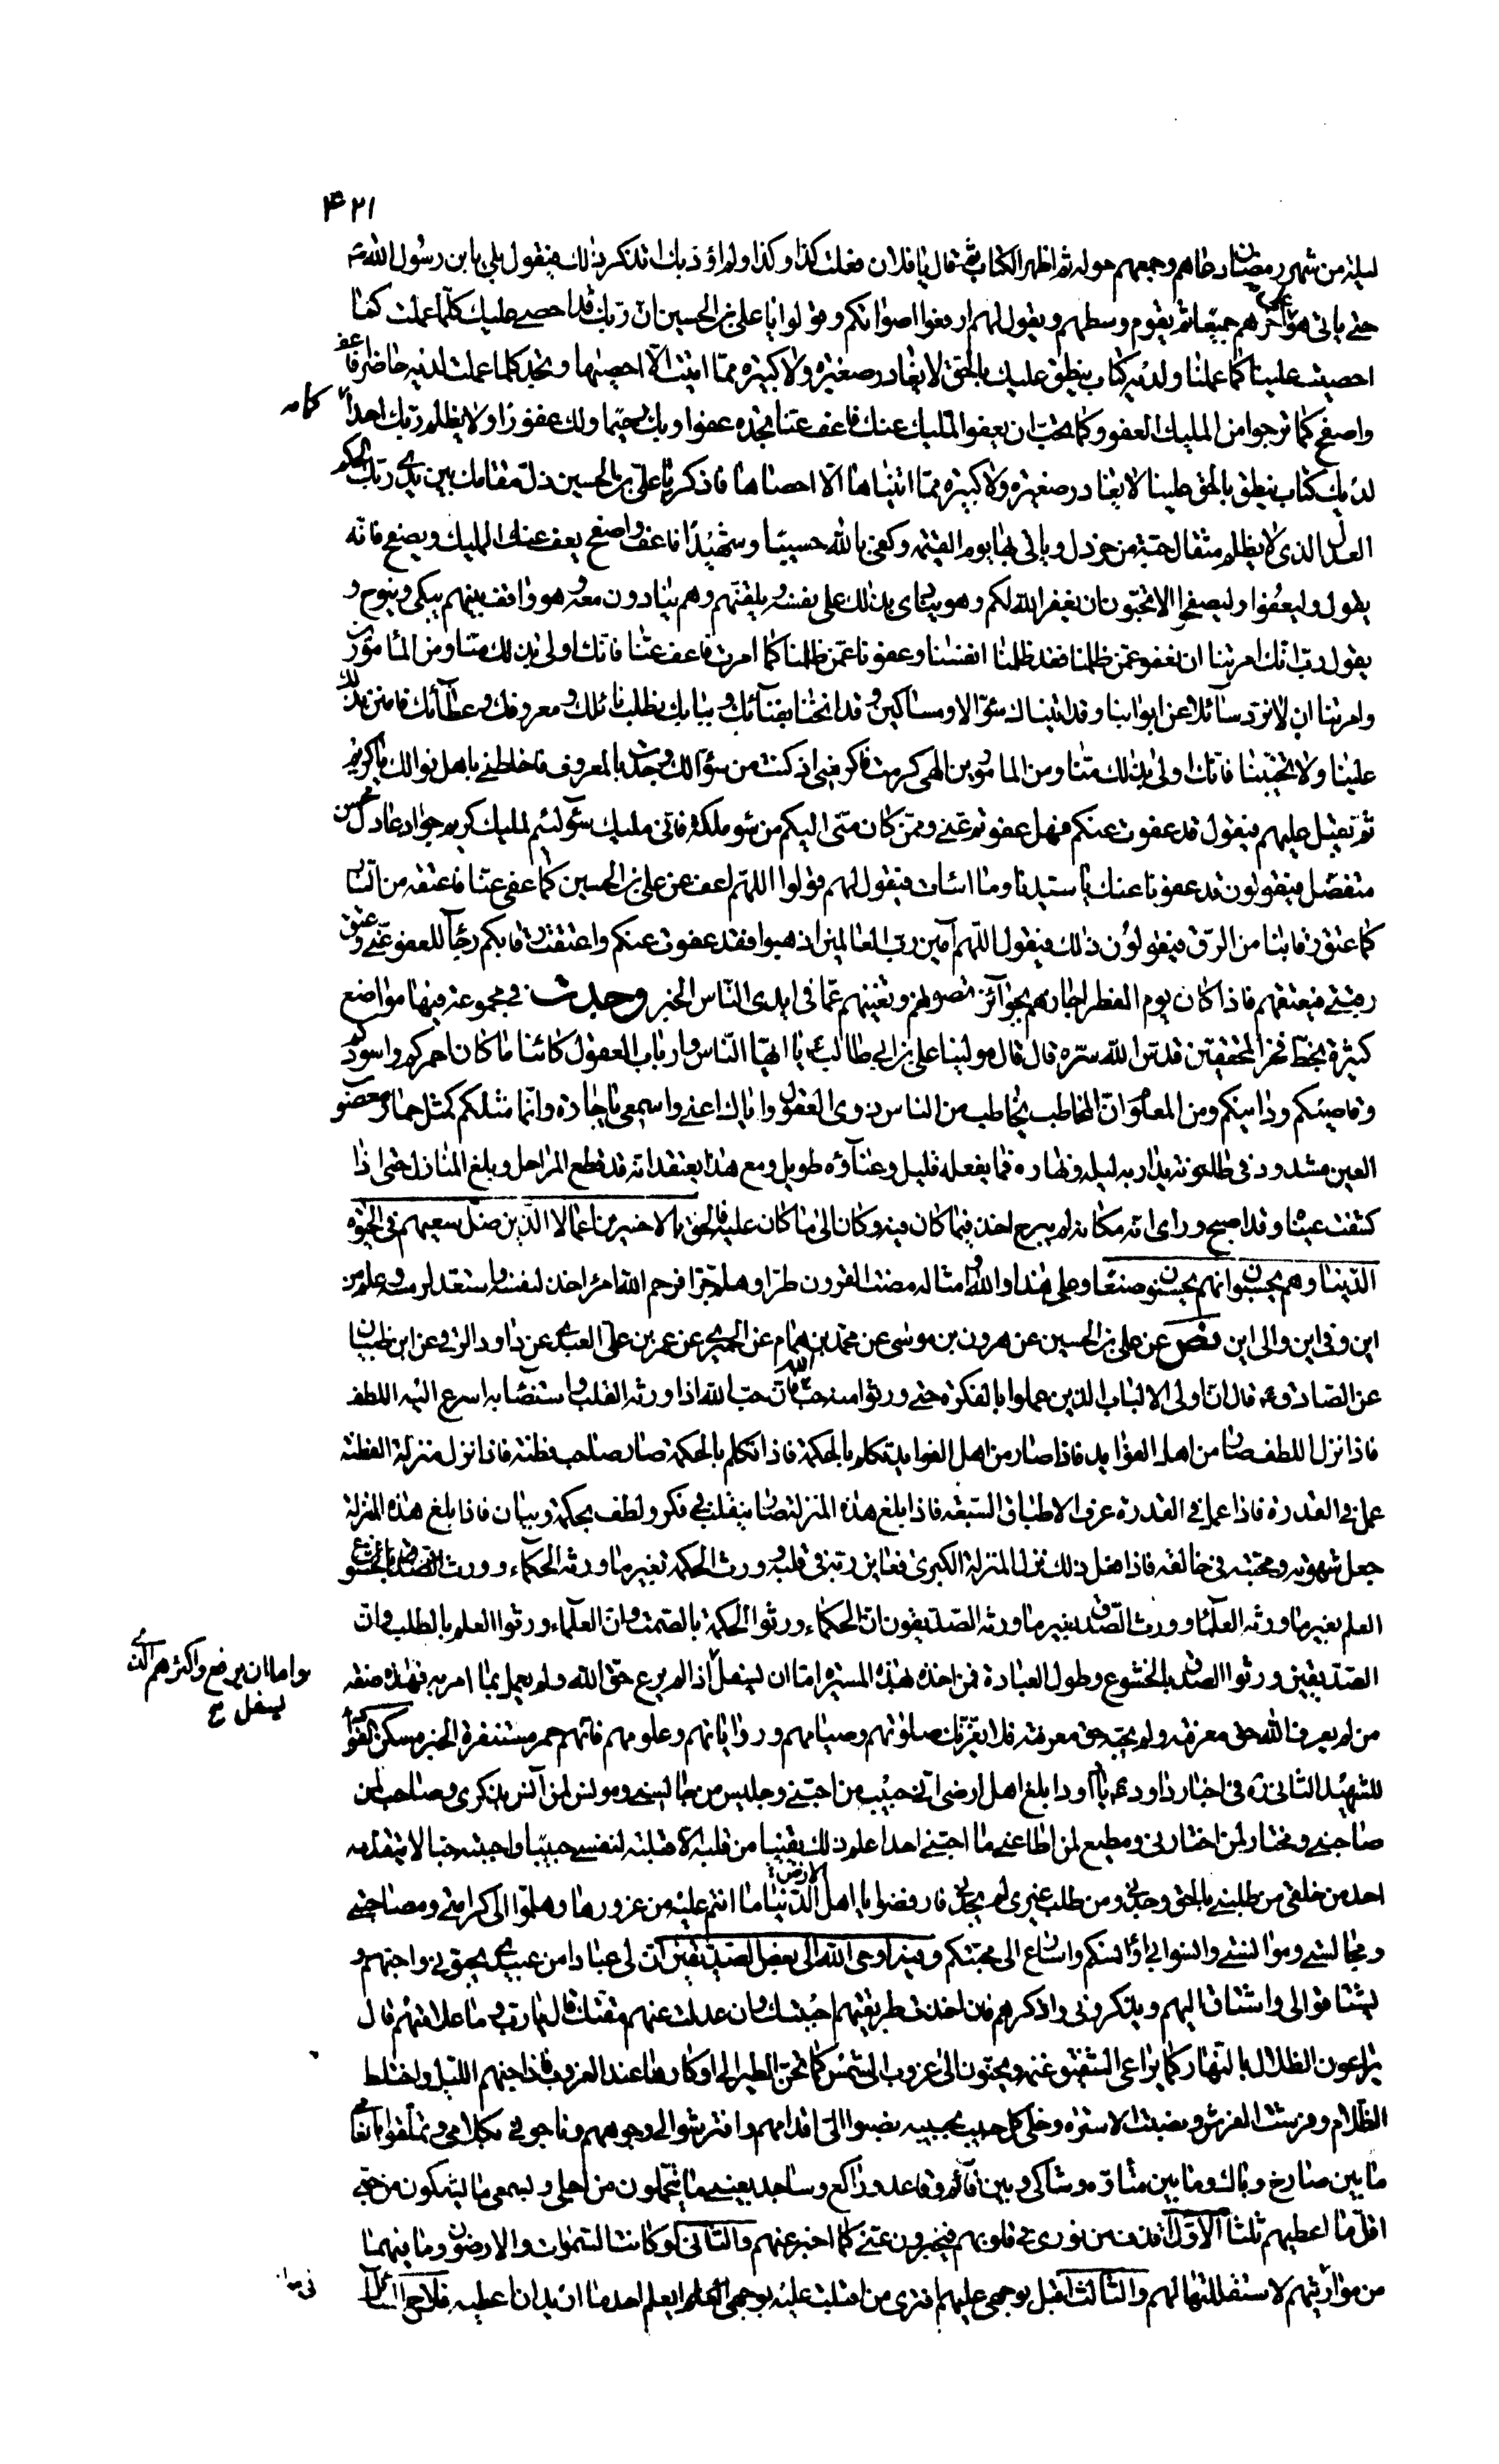 ۴۲۱
ليلة من شهر رمضان دعاهم وجمعهم حوله ثم اظهر الكتاب ثم قال يا فلان فعلت كذا وكذا ولم اؤذبك اتذكر ذلك فيقول بلى يا بن رسول الله
حتى ياتى على اخرهم جميعا ثم يقوم وسطهم ويقول لهم ارفعوا اصواتكم وقولوا يا على بن الحسين ان ربك قد احصى عليك كلما عملت كما
احصيت علينا كلما عملنا ولديه كتاب ينطق عليك بالحق لا يغادر صغيرة ولا كبيرة مما اتيت الا احصيها وتجد كلما عملت لديه حاضرا فاعف
واصفح كما ترجوا من المليك العفو وكما تحب ان يعفو المليك عنك فاعف عنا تجده عفوا وبك رحيما ولك غفورا ولا يظلم ربك احدا كما
لديك كتاب ينطق بالحق علينا لا يغادر صغيرة ولا كبيرة مما اتيناها الا احصاها فاذكر يا على بن الحسين ذل مقامك بين يدى ربك الحكم
العدل الذى لا يظلم مثقال حبة من خردل وياتى بها يوم القيمة وكفى بالله حسيبا وشهيدا فاعف واصفح يعف عنك المليك ويصفح فانه
يقول وليعفوا وليصفحوا الا تحبون ان يغفر الله لكم وهو ينادى بذلك على نفسه ويلقنهم وهم ينادون معه وهو واقف بينهم يبكى وينوح و
يقول رب انك امرتنا ان نعفو عمن ظلمنا فقد ظلمنا انفسنا وعفونا عمن ظلمنا كما امرت فاعف عنا فانك اولى بذلك منا ومن المامورين
وامرتنا ان لا نرد سائلا عن ابوابنا وقد اتيناك سؤالا ومساكين وقد انخنا بفنائك وببابك نطلب نائلك ومعروفك وعطائك فامنن بذلك
علينا ولا تخيبنا فانك اولى بذلك منا ومن المامورين الهى كرمت فاكرمنى اذ كنت من سؤالك وجدت بالمعروف فاخلطنى باهل نوالك يا كريم
ثم يقبل عليهم فيقول قد عفوت عنكم فهل عفوتم عنى ومما كان منى اليكم من سوء ملكة فانى مليك سوء لئيم لمليك كريم جواد عادل محسن
متفضل فيقولون قد عفونا عنك يا سيدنا وما اسات فيقول لهم قولوا اللهم اعف عن على بن الحسين كما عفى عنا فاعتقه من النار
كما عتق رقابنا من الرق فيقولون ذلك فيقول اللهم آمين رب العالمين اذهبوا فقد عفوت عنكم واعتقت رقابكم رجاء للعفو عنى وعتق
رقبتى فيعتقهم فاذا كان يوم الفطر اجازهم بجوائز تصونهم وتغنيهم عما فى ايدى الناس الخبر وجدت فى مجموعة فيها مواضع
كثيرة بخط فخر المحققين قدس الله سره قال قال مولينا على بن ابى طالب ع يا ايها الناس وارباب العقول كائنا ما كان احمركم واسودكم
وقاصيكم ودانيكم ومن المعلوم ان المخاطب يخاطب من الناس ذوى العقول واياك اعنى واسمعى يا جارة وانما مثلكم كمثل حمار معصوب
العين مشدود فى طاحونة يدار به ليله ونهاره فما يفعله قليل وعناؤه طويل ومع هذا يعتقد انه قد قطع المراحل وبلغ المنازل حتى اذا
كشفت عيناه وقد اصبح وراى انه مكانه لم يبرح اخذ فيما كان فيه وكان الى ما كان عليه فالحق بالاخسرين اعمالا الذين ضل سعيهم فى الحيوة
الدنيا وهم يحسبون انهم يحسنون صنعا وعلى هذا والله وامثاله مضت القرون طرا وهلم جرا فرحم الله امرا اخذ لنفسه واستعد لرمسه وعلم من
اين وفى اين والى اين نص عن على بن الحسين عن هرون بن موسى عن محمد بن همام عن الحميرى عن عمر بن على العبدى عن داود الرقى عن ابن ظبيان
عن الصادق ع قال ان اولى الالباب الذين عملوا بالفكرة حتى ورثوا منه حب الله فان حب الله اذا ورثه القلب واستضاء به اسرع اليه اللطف
فاذا نزل اللطف صار من اهل الفوايد فاذا صار من اهل الفوايد تكلم بالحكمة فاذا تكلم بالحكمة صار صاحب فطنة فاذا نزل منزلة الفطنة
عمل فى القدرة فاذا عمل فى القدرة عرف الاطباق السبعة فاذا بلغ هذه المنزلة صار يتقلب فى فكر ولطف بحكمة وبيان فاذا بلغ هذه المنزلة
جعل شهوته ومحبته فى خالقه فاذا فعل ذلك نزل المنزلة الكبرى فعاين ربه فى قلبه وورث الحكمة بغير ما ورثه الحكماء وورث
العلم بغير ما ورثه العلماء وورث الصدق بغير ما ورثه الصديقون ان الحكماء ورثوا الحكمة بالصمت وان العلماء ورثوا العلم بالطلب وان
الصديقين ورثوا الصدق بالخشوع وطول العبادة فمن اخذه بهذه المسيرة اما ان يسفل اذا لم يرع حق الله ولم يعمل بما امر به فهذه صفة
واما ان يرفع واكثرهم الذى
يسفل
من لم يعرف الله حق معرفته ولم يحبه حق معرفته فلا يغرنك صلوتهم وصيامهم ورواياتهم وعلومهم فانهم حمر مستنفرة الخبر مسكن الفؤاد
للشهيد الثانى ره فى اخبار داود ع يا داود ابلغ اهل ارضى انى حبيب من احبنى وجليس من جالسنى ومونس لمن آنس بذكرى وصاحب لمن
صاحبنى ومختار لمن اختارنى ومطيع لمن اطاعنى ما احبنى احد اعلم ذلك يقينا من قلبه الا قبلته لنفسى حبيبا واحببته حبا لا يتقدمه
احد من خلقى من طلبنى بالحق وجدنى ومن طلب غيرى لم يجدنى فارفضوا يا اهل الدنيا الارض ما انتم عليه من غرورها وهلموا الى كرامتى ومصاحبتى
ومجالستى وموانستى وانسوا بى اؤانسكم واسارع الى محبتكم وفيه اوحى الله الى بعض الصديقين ان لى عبادا من عبيدى يحبونى واحبهم و
يشتاقوا الى واشتاق اليهم ويذكرونى واذكرهم فان اخذت طريقهم احببتك وان عدلت عنهم مقتك قال يا رب وما علامتهم قال
يراعون الظلال بالنهار كما يراعى الشفيق غنمه ويحنون الى غروب الشمس كما تحن الطير الى اوكارها عند الغروب فاذا جنهم الليل واختلط
الظلام وفرشت الفرش ونصبت الاسرة وخلى كل حبيب بحبيبه نصبوا الى اقدامهم وافترشوا الى وجوههم وناجونى بكلامى وتملقوا بانعامى
ما بين صارخ وباك وما بين متاوه وشاكى وبين قائم وقاعد وراكع وساجد بعينى ما يتحملون من اجلى وبسمعى ما يشكون من حبى
اقل ما اعطيهم ثلثا الاول اقذف من نورى فى قلوبهم فيخبرون عنى كما اخبر عنهم والثانى لو كانت السموات والارضون وما فيهما
من مواريثهم لاستقللتها لهم والثالث اقبل بوجهى عليهم افترى من اقبلت عليه بوجهى ايعلم احد ما اريد ان اعطيه